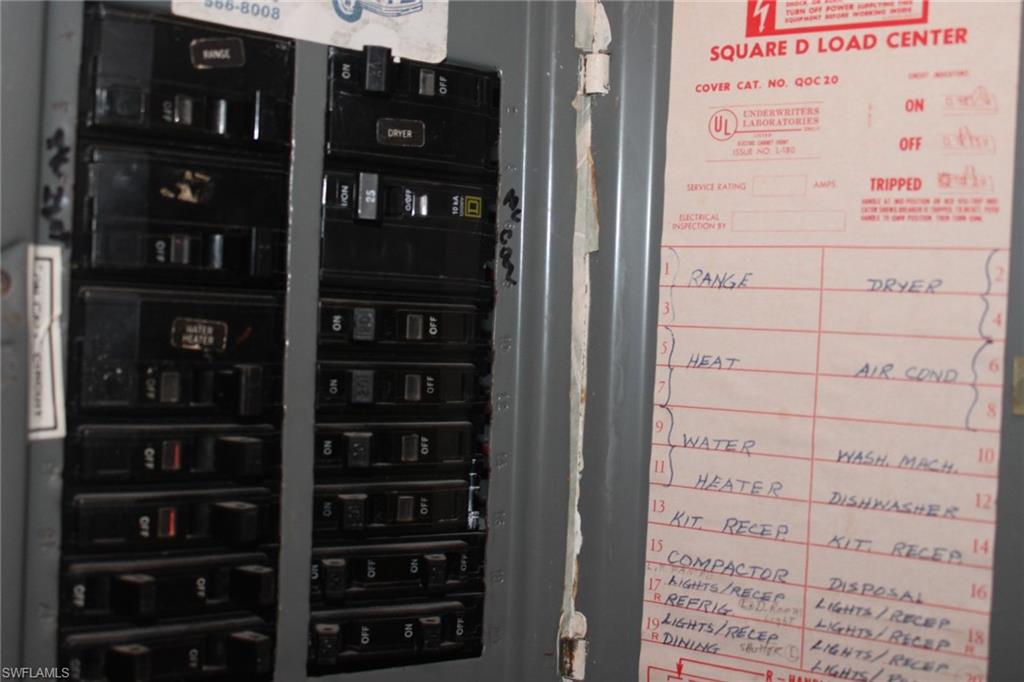 566-8008
RANGE
OFF
OFF
WATER
HEATER
OFF
OFF
OFF
OFF
OFF
OFF
ON
OFF
DRYER
I/ON
25
O/OFF
10 kA
ON
OFF
ON
OFF
ON
OFF
ON
OFF
ON
OFF
ON
OFF
OFF
ON
OFF
TURN OFF POWER SUPPLYING THIS
EQUIPMENT BEFORE WORKING INSIDE
SQUARE D LOAD CENTER
COVER CAT. NO. QOC20
UL
UNDERWRITERS
LABORATORIES
LISTED
ISSUE NO. L-180
ON
OFF
TRIPPED
SERVICE RATING AMPS.
ELECTRICAL
INSPECTION BY
1 RANGE DRYER 2
3 4
5 HEAT AIR COND 6
7 8
9 WATER WASH. MACH. 10
11 HEATER DISHWASHER 12
13 KIT. RECEP KIT. RECEP 14
15 COMPACTOR DISPOSAL 16
17 LIGHTS/RECEP LIGHTS/RECEP
R REFRIG LIGHTS/RECEP 18
R
19 LIGHTS/RECEP LIGHTS/RECEP
R DINING SHUTTER LIGHTS/ 20
SWFLAMLS